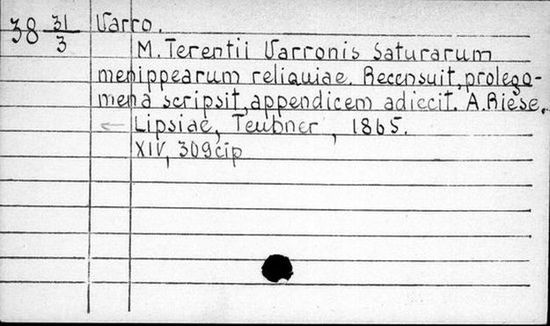 38 31/3 Varro.
M. Terentii Varronis Saturarum
menippearum reliquiae. Recensuit, prolego-
mena scripsit, appendicem adiecit. A. Riese.
Lipsiae, Teubner, 1865.
XIV, 309 cip